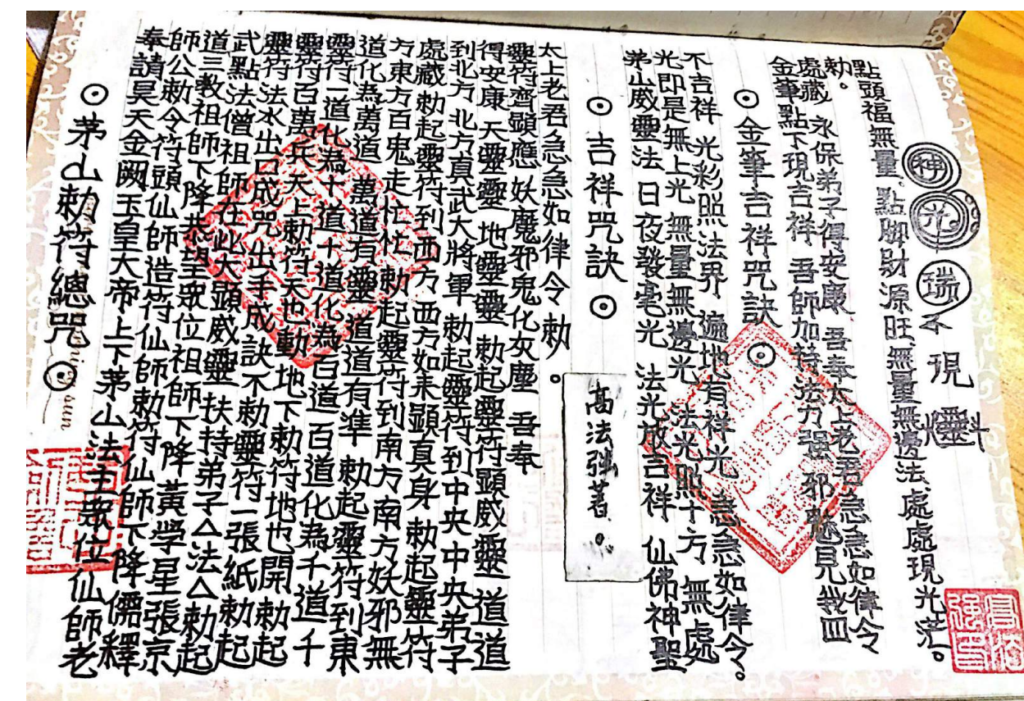 ⊙茅山勅符總咒⊙
奉請昊天金闕玉皇大帝上下茅山法主眾位仙師老
師公勅令符頭仙師造符仙師勅符仙師下降儒釋
道三教祖師下降恭望眾位祖師下降黃學星張京
武點法僧祖師在此大顯威靈 扶持弟子厶法厶勅起
靈符法水出口成咒出手成訣不勅靈符一張紙勅起
靈符百萬兵 天上勅符天也動 地下勅符地也開勅起
靈符一道化為十道十道化為百道百道化為千道千
道化為萬道 萬道有靈 道道有準 勅起靈符到東
方東方百鬼走忙忙 勅起靈符到南方南方妖邪無
處藏 勅起靈符到西方 西方如來顯真身 勅起靈符
到北方 北方真武大將軍 勅起靈符到中央 中央弟子
得安康 天靈靈 地靈靈 勅起靈符顯威靈 道道
靈符齊顯應 妖魔邪鬼化灰塵 吾奉
太上老君急急如律令勅。
⊙吉祥咒訣⊙
高法強著。
茅山威靈法 日夜發毫光 法光放吉祥 仙佛神聖
光即是無上光 無量無邊光 法光照十方 無處
不吉祥 光彩照法界 遍地有祥光 急急如律令。
⊙金筆吉祥咒訣⊙
金筆點下現吉祥 吾師加持法力強 邪魅見我四
處藏 永保弟子得安康 吾奉太上老君急急如律令
勅。
點頭福無量 點腳財源旺 無量無邊法 處處現光茫。
神光瑞 現